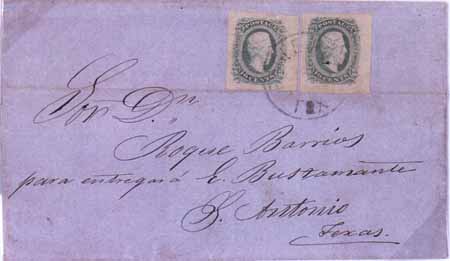 POSTAGE POSTAGE
CENTS CENTS
Sor Dn
Roque Barrios
para entregar á E. Bustamante
S. Antonio
Texas.